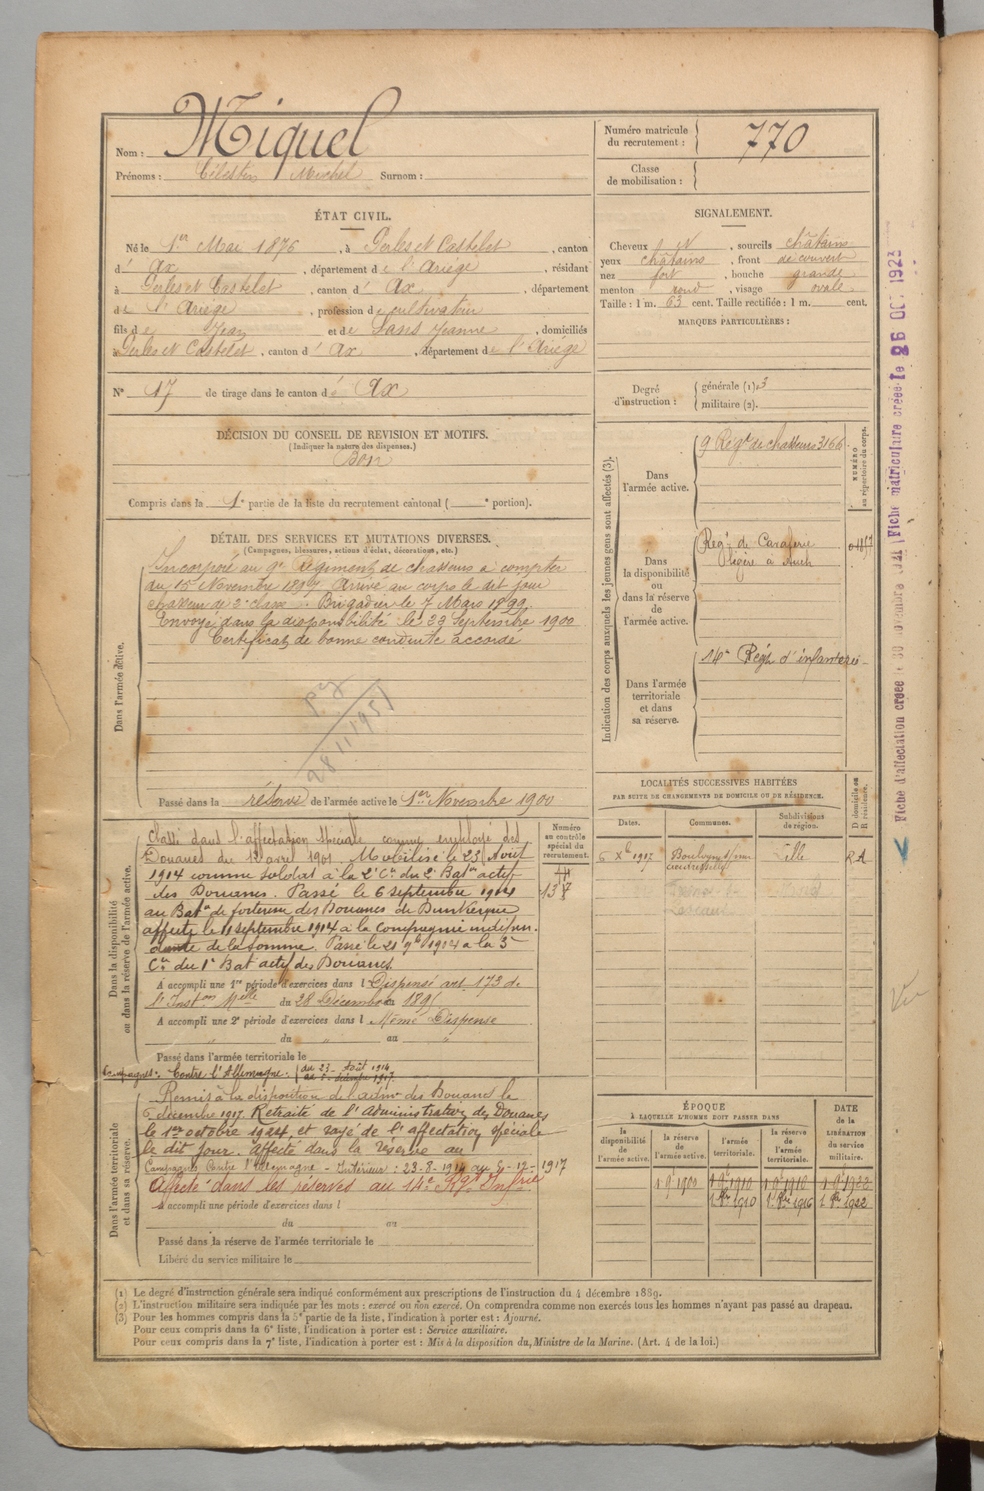 Nom : Miquel
Prénoms : Célestin Michel Surnom :
Numéro matricule du recrutement : 770
Classe de mobilisation :
ÉTAT CIVIL.
Né le 1er Mai 1876, à Perles et Castelet, canton
d' Ax, département de l'Ariège, résidant
à Perles et Castelet, canton d' Ax, département
de l'Ariège, profession de cultivateur
fils de Jean et de Sans Jeanne, domiciliés
à Perles et Castelet, canton d' Ax, département de l'Ariège
N° 17 de tirage dans le canton d' Ax
SIGNALEMENT.
Cheveux, sourcils châtains
yeux châtains, front découvert
nez fort, bouche grande
menton rond, visage ovale
Taille : 1 m. 63 cent. Taille rectifiée : 1 m. cent.
MARQUES PARTICULIÈRES :
Degré d'instruction : générale (1). 3
militaire (2).
DÉCISION DU CONSEIL DE REVISION ET MOTIFS.
(Indiquer la nature des dispenses.)
Bon
Compris dans la 1e partie de la liste du recrutement cantonal ( e portion).
DÉTAIL DES SERVICES ET MUTATIONS DIVERSES.
(Campagnes, blessures, actions d'éclat, décorations, etc.)
Dans l'armée active.
Incorporé au 9e Régiment de chasseurs à compter
du 15 Novembre 1897 Arrivé au corps le dit jour
chasseur de 2e classe. Brigadier le 7 Mars 1899.
Envoyé dans la disponibilité le 29 Septembre 1900
Certificat de bonne conduite accordé
28/11/1951
Passé dans la réserve de l'armée active le 1er Novembre 1900
Indication des corps auxquels les jeunes gens sont affectés (3).
NUMÉRO au répertoire du corps.
Dans l'armée active.
9 Regt de chasseurs 3166
Dans la disponibilité ou dans la réserve de l'armée active.
Regt de Cavalerie
légère à Auch
Dans l'armée territoriale et dans sa réserve.
14e Régt d'infanterie
LOCALITÉS SUCCESSIVES HABITÉES
PAR SUITE DE CHANGEMENTS DE DOMICILE OU DE RÉSIDENCE.
Dates. Communes. Subdivisions de région. D domicile ou R résidence.
6 Xbre 1917 Lille
Dans la disponibilité ou dans la réserve de l'armée active.
Numéro au contrôle spécial du recrutement.
Classé dans l'affectation spéciale comme employé des
Douanes du avril 1901. Mobilisé le 23 Août
1914 comme soldat à la 2e Cie du 2e Baton actif
des Douanes. Passé le 6 septembre 1914
au Baton de forteresse des Douanes de Dunkerque
affecté le 11 septembre 1914 à la Compagnie indépen-
dante de la Somme. Passé le 21 9bre 1914 à la 3e
Cie du 1er Bat actif des Douanes
A accompli une 1re période d'exercices dans l Dispensé art. 173 de
l'Inston Melle du 28 Décembre au 189
A accompli une 2e période d'exercices dans l Même Dispense
du " au "
Passé dans l'armée territoriale le
Campagnes : Contre l'Allemagne : du 23 Août 1914
Dans l'armée territoriale et dans sa réserve.
Remis à la disposition de l'admon des Douanes le
6 décembre 1917. Retraité de l'Administration des Douanes
le 1er octobre 1924, et rayé de l'affectation spéciale
le dit jour. Affecté dans la réserve au
Campagne Contre l'Allemagne - Intérieur : 23-8-1914 au 5-12-1917
Affecté dans les réserves au 14e Rgt Infrie
A accompli une période d'exercices dans l
du au
Passé dans la réserve de l'armée territoriale le
Libéré du service militaire le
ÉPOQUE
À LAQUELLE L'HOMME DOIT PASSER DANS
la disponibilité de l'armée active. la réserve de l'armée active. l'armée territoriale. la réserve de l'armée territoriale. DATE de la LIBÉRATION du service militaire.
1 9bre 1900 1 9bre 1910 1 9bre 1916 1 9bre 1922
(1) Le degré d'instruction générale sera indiqué conformément aux prescriptions de l'instruction du 4 décembre 1889.
(2) L'instruction militaire sera indiquée par les mots : exercé ou non exercé. On comprendra comme non exercés tous les hommes n'ayant pas passé au drapeau.
(3) Pour les hommes compris dans la 5e partie de la liste, l'indication à porter est : Ajourné.
Pour ceux compris dans la 6e liste, l'indication à porter est : Service auxiliaire.
Pour ceux compris dans la 7e liste, l'indication à porter est : Mis à la disposition du Ministre de la Marine. (Art. 4 de la loi.)
Fiche d'affectation créée le 30 novembre Fiche matriculaire créée le 26 OCT 1923
Vu